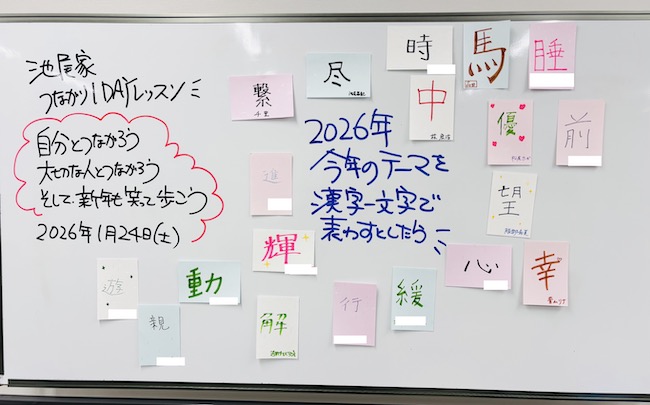 池尾家
つながり1DAYレッスン
自分とつながろう
大切な人とつながろう
そして、新年も笑って歩こう
2026年1月24日(土)
2026年
今年のテーマを
漢字一文字で
表わすとしたら
繋
千里
尽
時
中
馬
睡
優
前
望
進
輝
心
幸
遊
動
親
解
行
緩